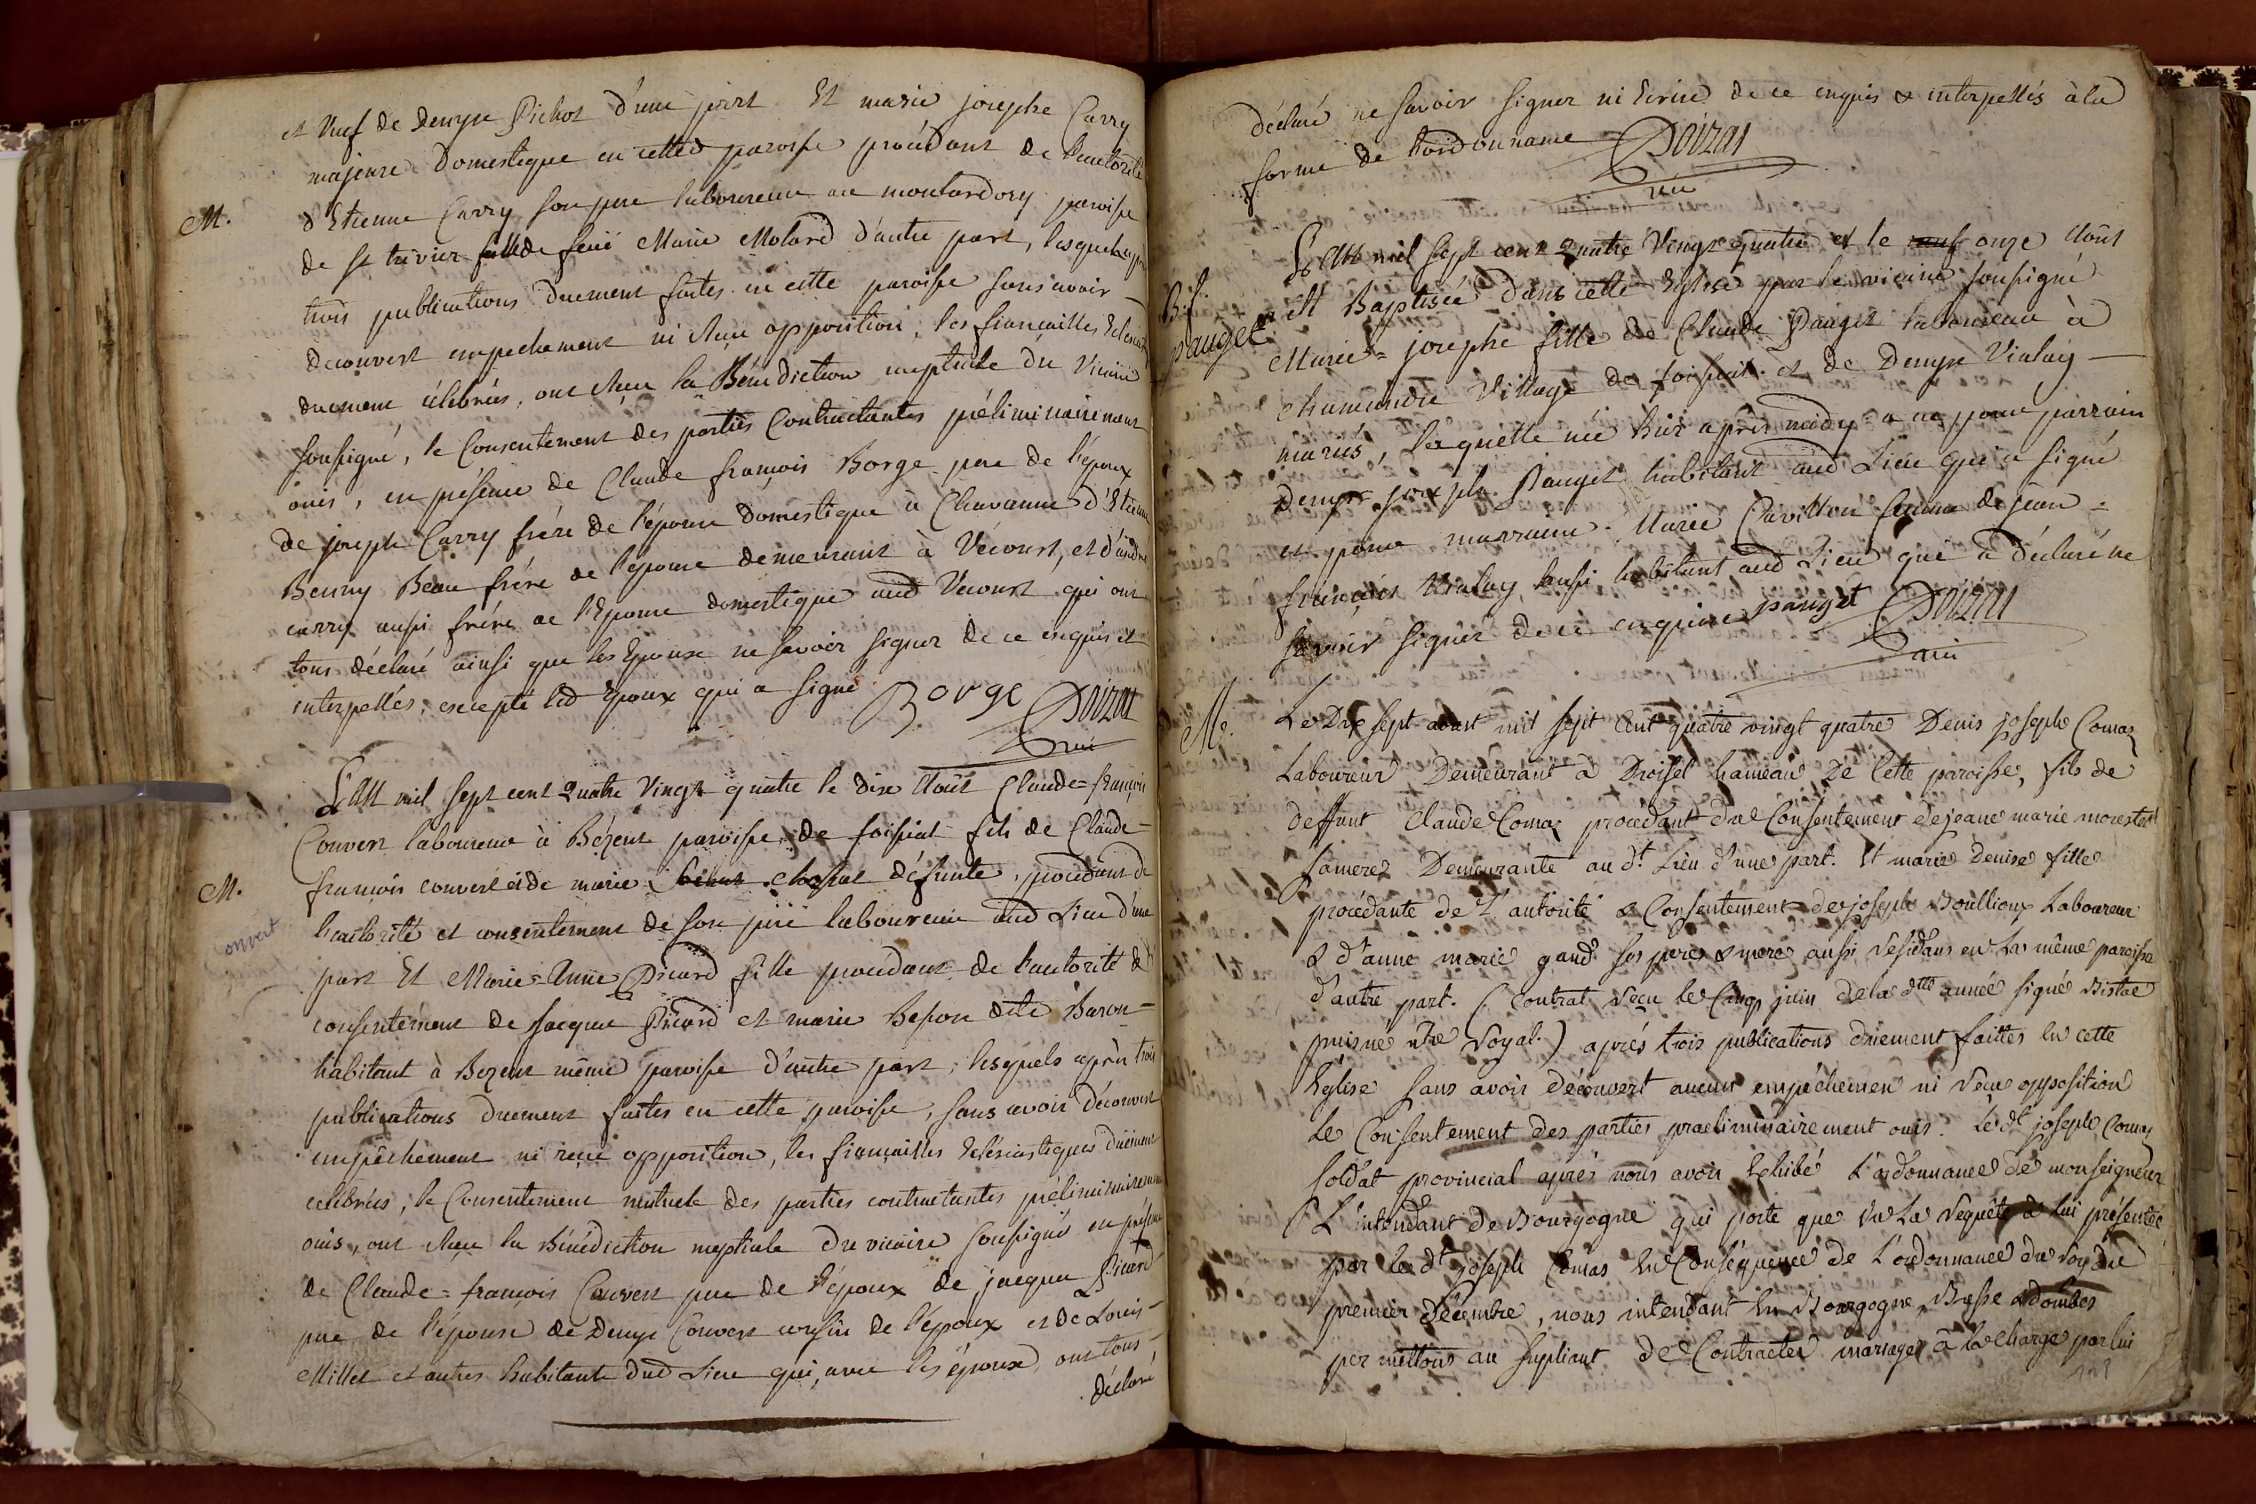 et veuf de denyse Pichot d'une part Et marie josephe Carry
majeure Domestique en cette paroisse procédant de l'autorité
M.
d'Etienne Carry son pere laboureur au montardosy paroisse
de st trivier fille de feüe Marie Molard d'autre part, lesquels après
trois publications duement faites en cette paroisse sans avoir
decouvert empechement ni reçu opposition, les fiancailles
duement célébrées, ont reçu la Bénédiction nuptiale du Vicaire
soussigné, le Consentement des parties Contractantes préliminairement
ouis, en présence de Claude françois Borge pere de l'époux
de joseph Carry frère de l'épouse domestique à Chavanne d'Etienne
Benny Beau frére de l'épouse demeurant à Vécourt, et d'andré
carry aussi frére de l'Epouse domestique aud Vecourt qui ont
tous déclaré ainsi que les Epouse ne savoir signer de ce enquis et
interpellés, excepté led Epoux qui a signé Borge Doizat
vic
L'an mil sept cent quatre Vingt quatre le dix Août Claude=françois
Convert laboureur à Bézent paroisse de foissiat fils de Claude-
M.
françois convert et de marie chossat défunte, procédant de
convert
l'autorité et consentement de son père laboureur aud Lieu d'une
part Et Marie=Anne Picard fille procedant de l'autorité et
consentement de Jacque Picard et marie Besson dite Baron-
habitant à Bezent même paroisse d'autre part, lesquels après trois
publications duement faites en cette paroisse, sans avoir découvert
empêchement ni reçu opposition, les fiancailles eclésiastiques duement
célébrées, le Consentement mutuele des parties contractantes préliminairement
ouis, ont reçu la Bénédiction nuptiale du vicaire soussigné en présence
de Claude=francois Convert pere de l'époux de jacque Picard
pere de l'épouse de Denys Convert cousin de l'époux et de Louis-
Millet et autres habitants dud Lieu qui, avec les époux, ont tous,
déclaré
déclaré ne savoir signer ni Ecrire de ce enquis & interpellés à la
forme de l'ordonnance Doizat
vic
L'an mil sept cent quatre Vingt quatre et le onze Août
B.f.
pauget
est Baptisée dans cette Eglise par le vicaire soussigné
Marie=josephe fille de Claude Pauget laboureur à
chamandre Village de foissiat et de Denyse Vialay-
mariés, laquelle née hier après midy a eu pour parrain
Denys joseph Pauget habitant aud Lieu qui a signé
et pour marraine Marie Pavillon femme de jean=
françois Vialay aussi habitant aud Lieu qui a déclaré ne
savoir signer de ce enquise pauget Doizat
vic
M.
Le Dix sept aoust mil sept cent quatre vingt quatre Denis joseph Comas
Laboureur Demeurant à Droisel hameau De Cette paroisse, fils de
deffunt Claude Comas procédant du Consentement de jeane marie morestel
sa mere Demeurante au dt. Lieu d'une part. Et marie Denise fille
procédante de L'autorité & Consentement de joseph Boüillioux Laboureur
& d'anne marie gand ses pere & mere aussi résidans en la même paroisse
d'autre part. (Contrat recu le Cinq juin de la dtte année signé Bistac
puisné ntre royal.) après trois publications düement faittes en cette
Eglise sans avoir découvert aucun empéchemen ni reçu opposition
Le Consentement des parties praeliminairement ouis. Le dt joseph Comas
soldat provincial aprés nous avoir Exhibé L'ordonnance de monseigneur
L'intendant de Bourgogne qui porte que vu la requête à lui présentée
par le dt joseph Comas En Conséquence de L'ordonnance du Roy du
premier Décembre, nous intendant En Bourgogne, Bresse & dombes
permettons au supliant de Contracter mariage à la charge par lui